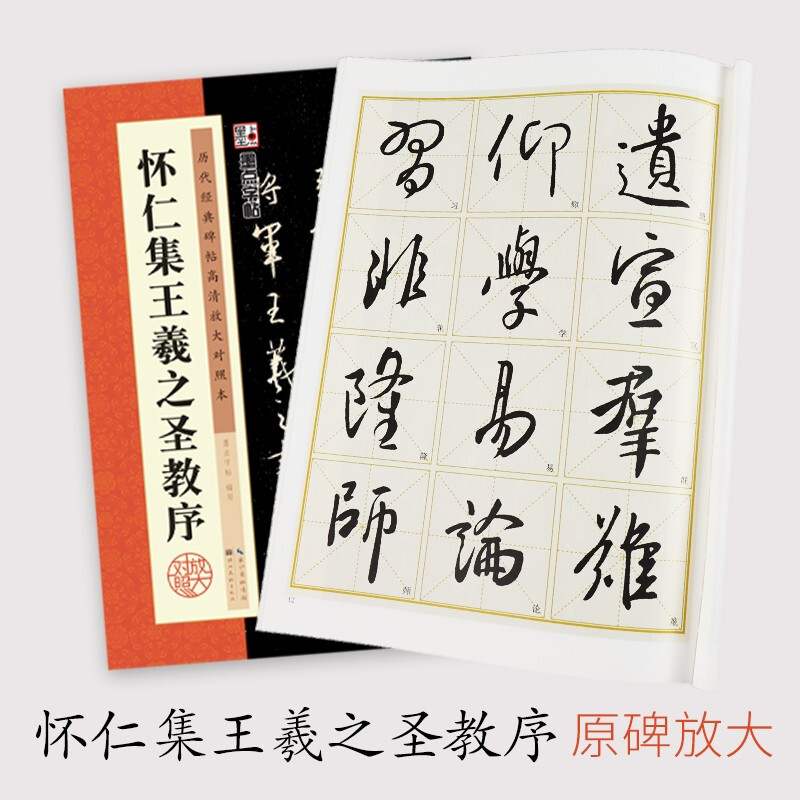 怀仁集王羲之圣教序
历代经典碑帖高清放大对照本
墨点字帖 编写
放大对照
墨点字帖
将軍王羲之
遺宣羣難
仰學易論
習非隆師
习
仰
遗
非
学
宣
隆
易
群
师
论
难
12
怀仁集王羲之圣教序 原碑放大